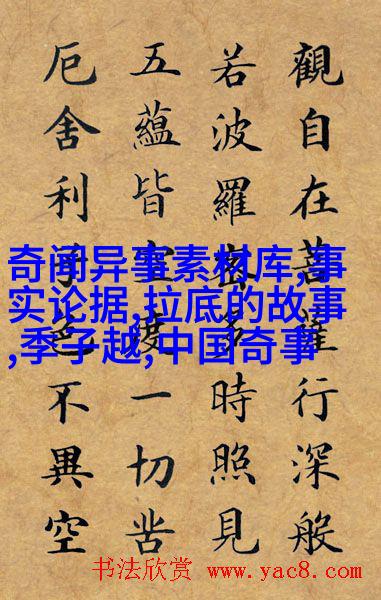 觀自在菩薩行深般
若波羅蜜多時照見
五蘊皆空度一切苦
厄舍利子色不異空
奇闻异事素材库,事
实论据,拉底的故事
,季子越,中国奇事
书法欣赏 www.yac8.com